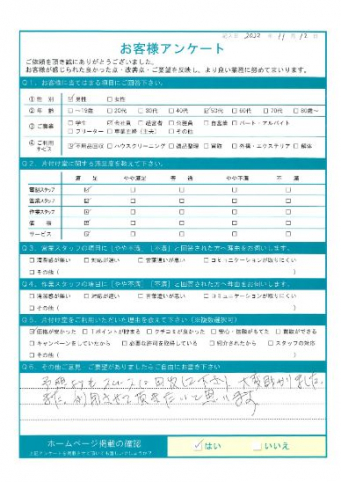 2022年11月12日
お客様アンケート
ご依頼を頂き誠にありがとうございました。
お客様が感じられた良かった点・改善点・ご要望を反映し、より良い業務に努めてまいります。
Q1．お客様に当てはまる項目にご回答下さい。
①性別 ☑男性 □女性
②年齢 □～19代 □20代 □30代 □40代 ☑50代 □60代 □70代 □80歳～
③ご職業 □学生 ☑会社員 □経営者 □公務員 □自営業 □パート・アルバイト
□フリーター □専業主婦（主夫） □その他
④ご利用サービス ☑不用品回収 □ハウスクリーニング □遺品整理 □買取 □外構・エクステリア □解体
Q2．片付け堂に関する満足度を教えて下さい。
満足 やや満足 普通 やや不満 不満
電話スタッフ ☑
営業スタッフ ☑
作業スタッフ ☑
価格 ☑
サービス ☑
Q3．営業スタッフの項目に「やや不満」「不満」と回答された方へ理由をお伺いします。
□清潔感が無い □対応が遅い □言葉遣いが悪い □コミュニケーションが取りにくい
□その他（ ）
Q4．作業スタッフの項目に「やや不満」「不満」と回答された方へ理由をお伺いします。
□清潔感が無い □対応が遅い □言葉遣いが悪い □コミュニケーションが取りにくい
□その他（ ）
Q5．片付け堂をご利用いただいた理由を教えて下さい（複数回答可）
☑価格が安かった □Tポイントが貯まる □クチコミが良かった □安心・信頼がもてた □買取ができる
□キャンペーンをしていたから □必要な許可を取得している □紹介されたから □スタッフの対応
□その他（ ）
Q6．その他ご意見・ご要望がありましたらご自由にお書き下さい
回収して下さり、大変助かりました。
また、利用させて頂きたいと思います
ホームページ掲載の確認
☑はい □いいえ